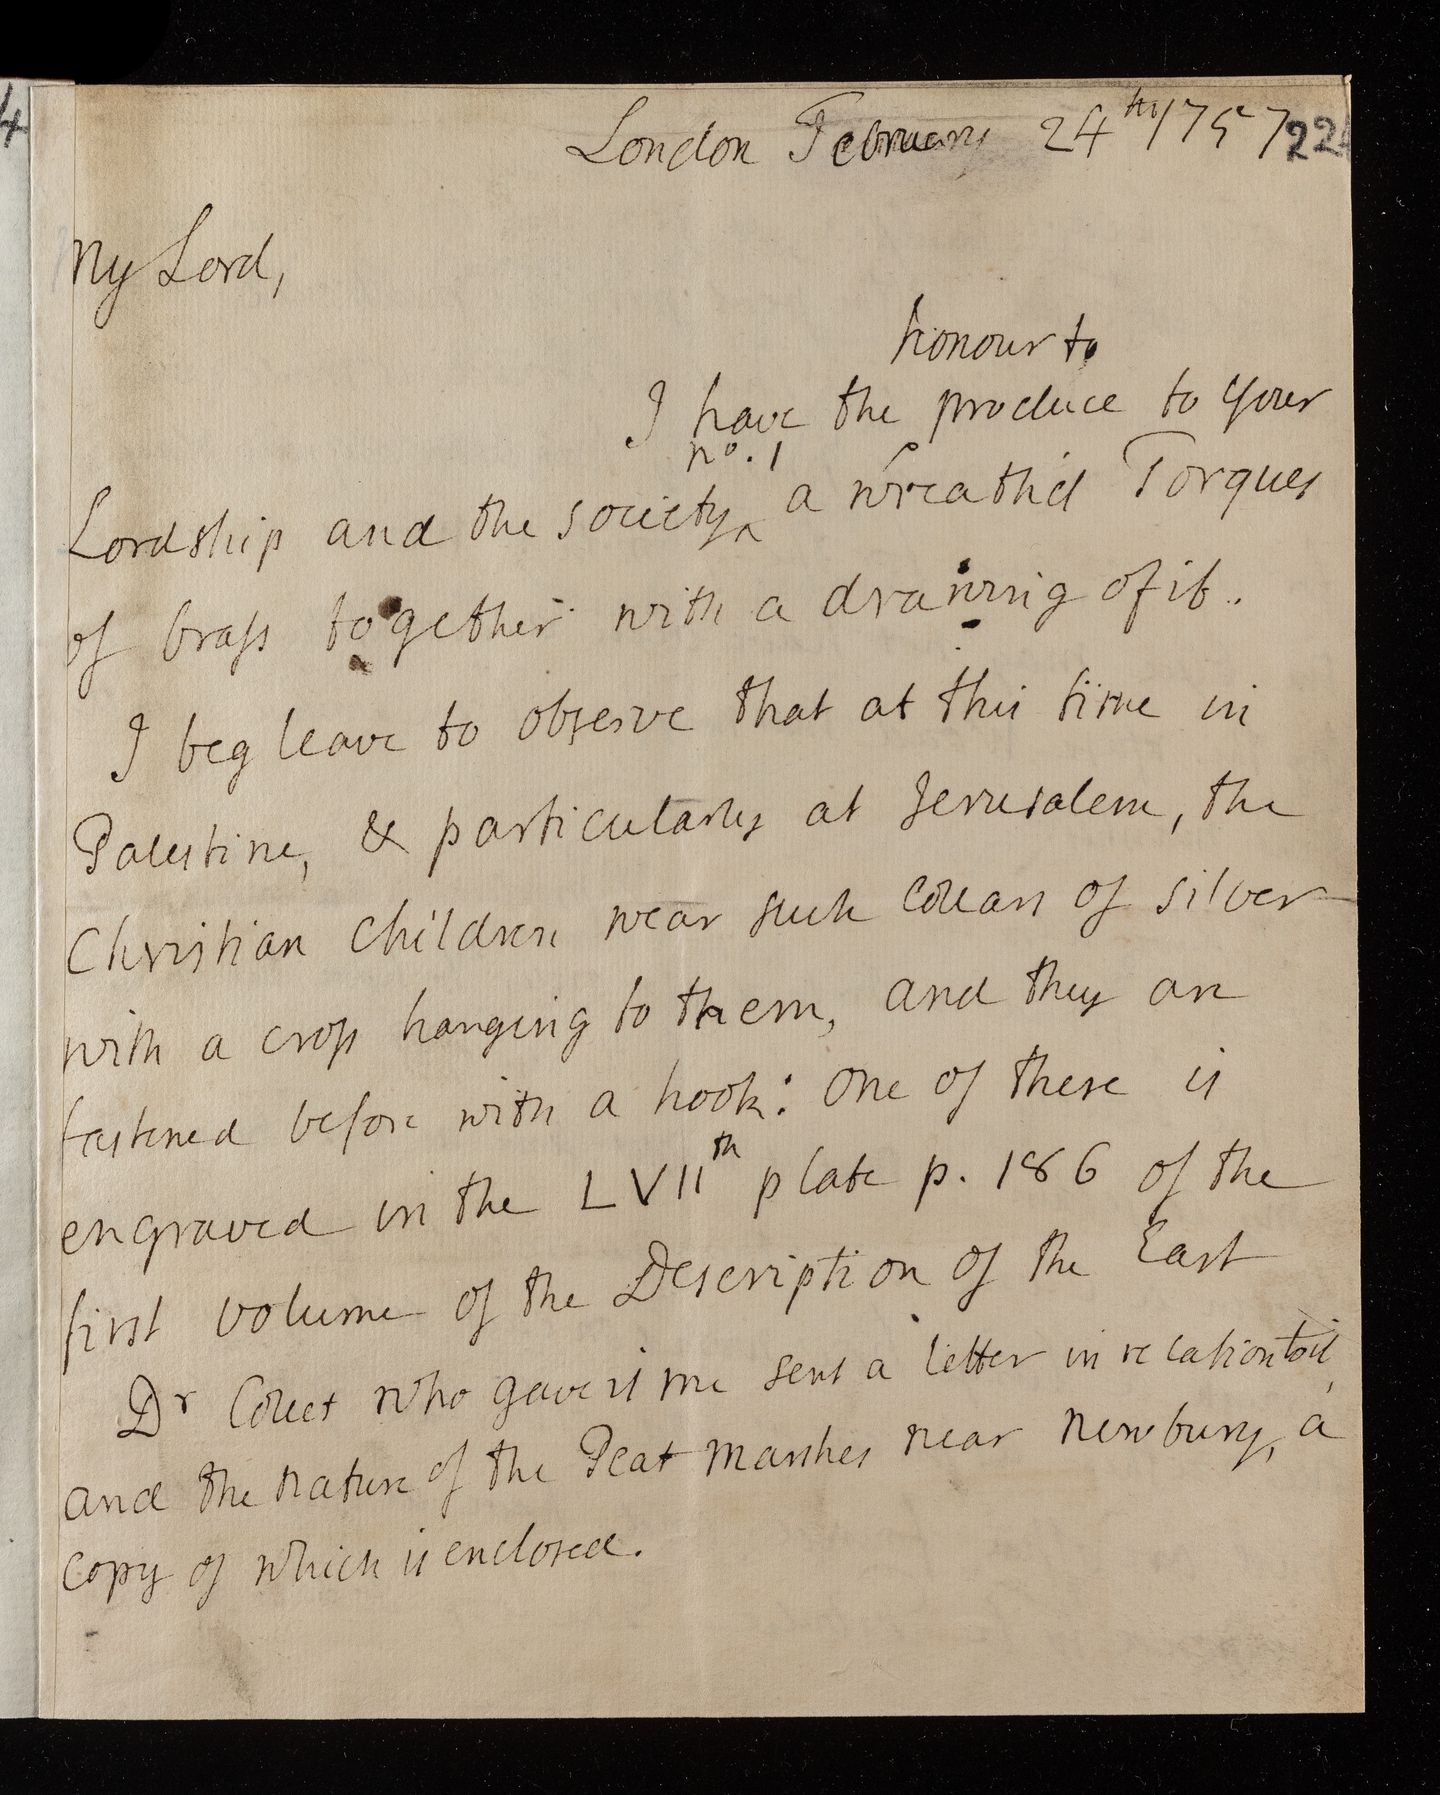 4
London February 24th 1757 22
My Lord,
honour to
I have the produce to your
no. 1
Lordship and the society ‸ a wreath'd Torques
of brass together with a drawing of it.
I beg leave to observe that at this time in
Palestine, & particularly at Jerusalem, the
Christian Children wear such Collars of silver
with a cross hanging to them, and they are
fastened before with a hook: One of these is
engraved in the LVIIth plate p. 186 of the
first volume of the Description of the East
Dr Collet who gave it me sent a letter in relation to it,
and the nature of the Peat Marshes near Newbury, a
Copy of which is enclosed.